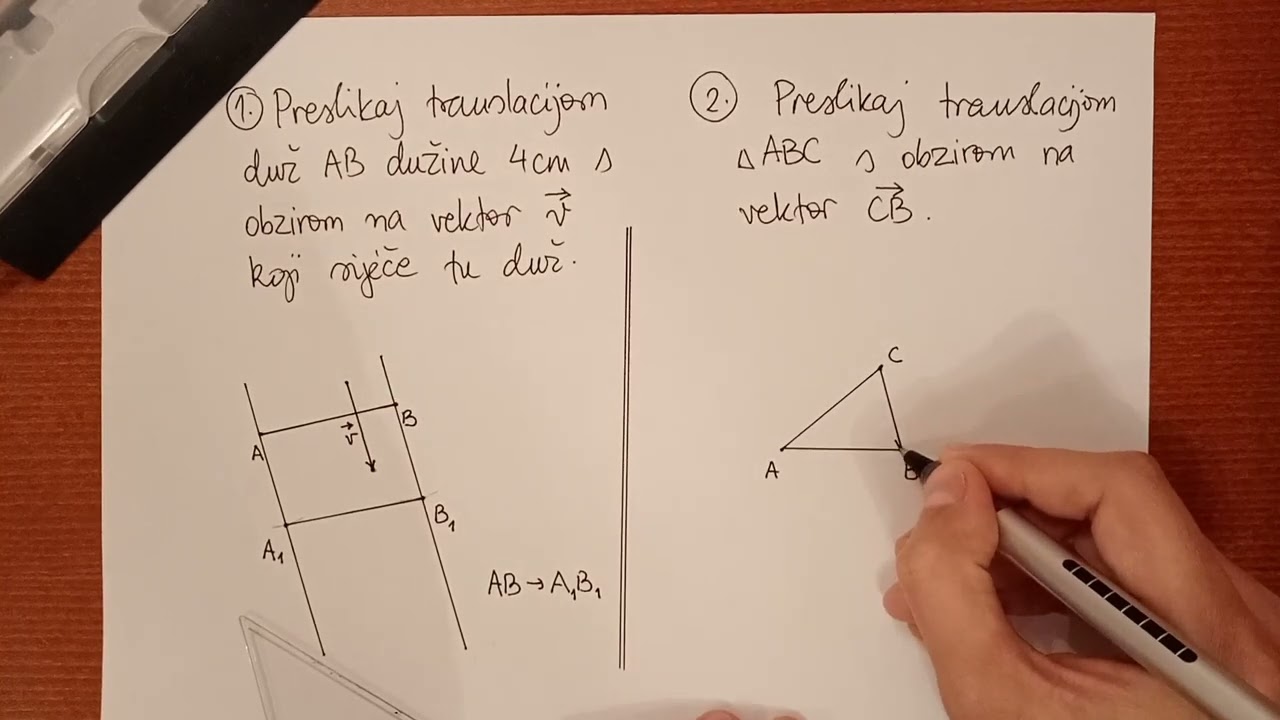 1. Preslikaj translacijom
duž AB dužine 4cm s
obzirom na vektor v⃗
koji siječe tu duž.
A
B
v⃗
A₁
B₁
AB → A₁B₁
2. Preslikaj translacijom
△ABC s obzirom na
vektor CB⃗.
C
A
B